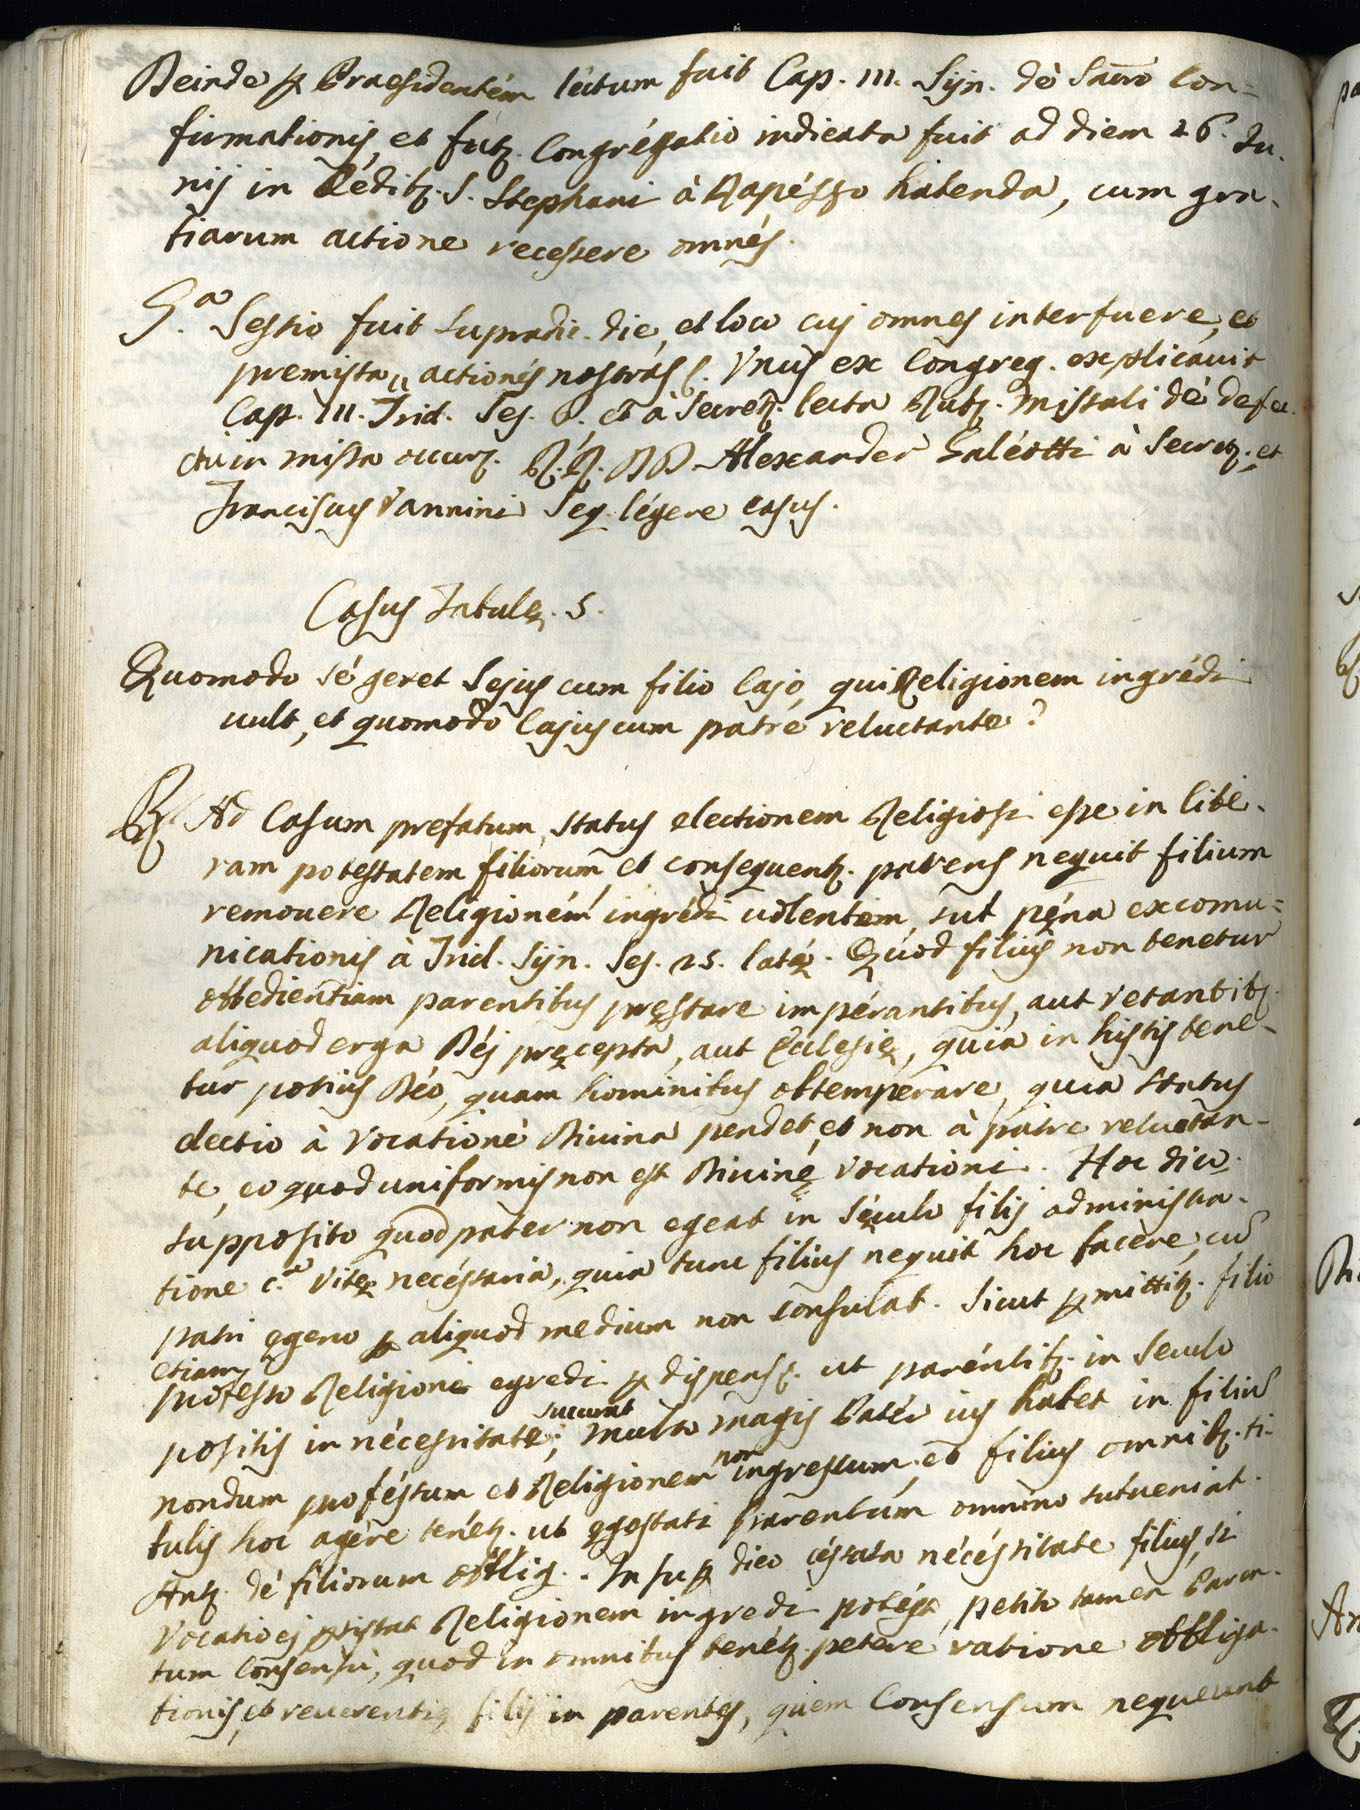 Deinde ꝑ Praesidentém léctum fuit Cap. III. Syn. dè Sacro Con=
firmationis, et futꝫ. Congrégatio indicata fuit ad diem 26. Ju.
nij in AÉditꝫ. S. Stephani à Rapézzo habenda, cum gra-
tiarum actione recessere omnés.
5.a Sessio fuit supradic. die, et loco cuj omnes interfuere, et
premissa,, actionés nostrás f. Vnus ex Congreg. explicauit
Cap. III. Trid. Ses. et à Secretꝫ. lecta Rubꝫ. Missali dè defe-
ctu in missa occurꝫ. R.R. DD. Alexander Galéotti à Secretꝫ. et
Franciscus Vannini Seq. légere casus.
Casus Tabulę. 5.
Quomodo sé geret Sejus cum filio Cajo, qui Religionem ingrédi
uult, et quomodo Cajus cum patre reluctante?
R. Ad Casum prefatum, status electionem Religiosi esse in libe-
ram potestatem filiorum et consequentꝫ. patrens nequit filium
remouere Religioném ingrédi uolentem, sub pęna excomu=
nicationis à Trid. Syn. Ses. 25. latę. Quod filius non tenetur
obbedientiam parentibus pręstare impérantibus, aut vetantibꝫ.
aliquod erga Déj pręcepta, aut Ecclesię, quia in histis tene-
tur potius Déo, quam hominibus obtemperare, quia status
electio à Vocatione Diuina pendet, et non à patre reluctan-
te, eo quod uniformis non est Diuinę vocationi. Hoc dico.
supposito quod pater non egeat in Sęculo filij administra-
tione c.a Vitę necéssaria, quia tunc filius nequit hoc facere, cū
patri egeno ꝑ aliquod medium non consulat. Sicut ꝑmittitꝫ. filio
etiam
professo Religione egredi ꝑ dispensꝫ. ut paréntibꝫ. in Seculo
positis in nécessitate succurat; multo magis Patér ius habet in filiū
nondum proféssum et Religionem non ingressum. et filius omnibꝫ. ti-
tulis hoc agère tenétꝫ. ut egestati parentum omnino subueniat.
Antꝫ. dé filiorum obblig. Insuꝑ dico céssata nécéssitate filius, si
Vocatio ej ꝑsistat Religionem ingredi potést, petito tamen Paren-
tum Consensu, quod in omnibus tenétꝫ. petere ratione obbliga-
tionis, et reuerentię filij in parentes, quem Consensum nequeunt